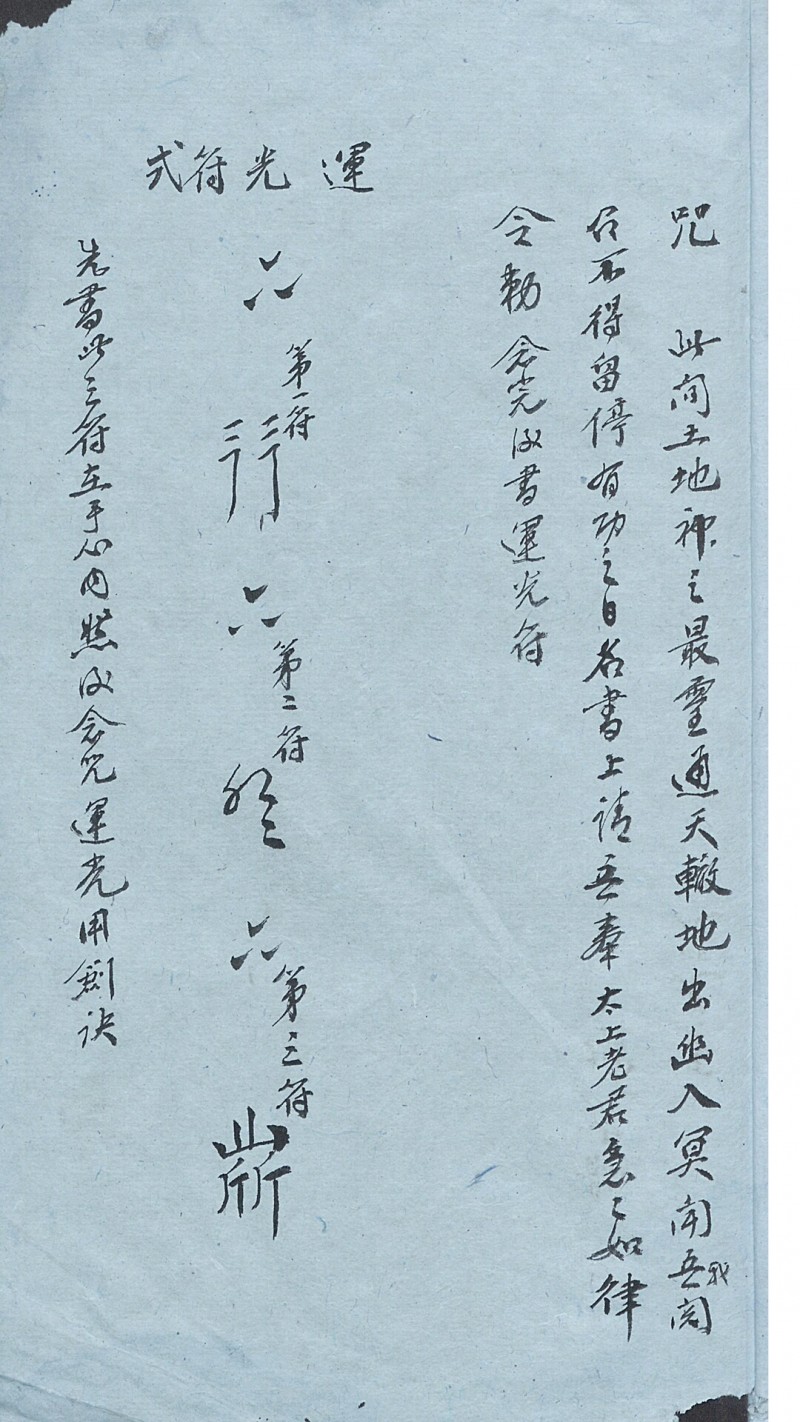 咒　此间土地神之最灵通天辙地出幽入冥闻吾我関
召不得留停有功之日名書上請吾奉太上老君急々如律
令勅　念完后書運光符
運光符式
第一符
第二符
第三符
先書此三符在手心内然后念咒運光用劍诀